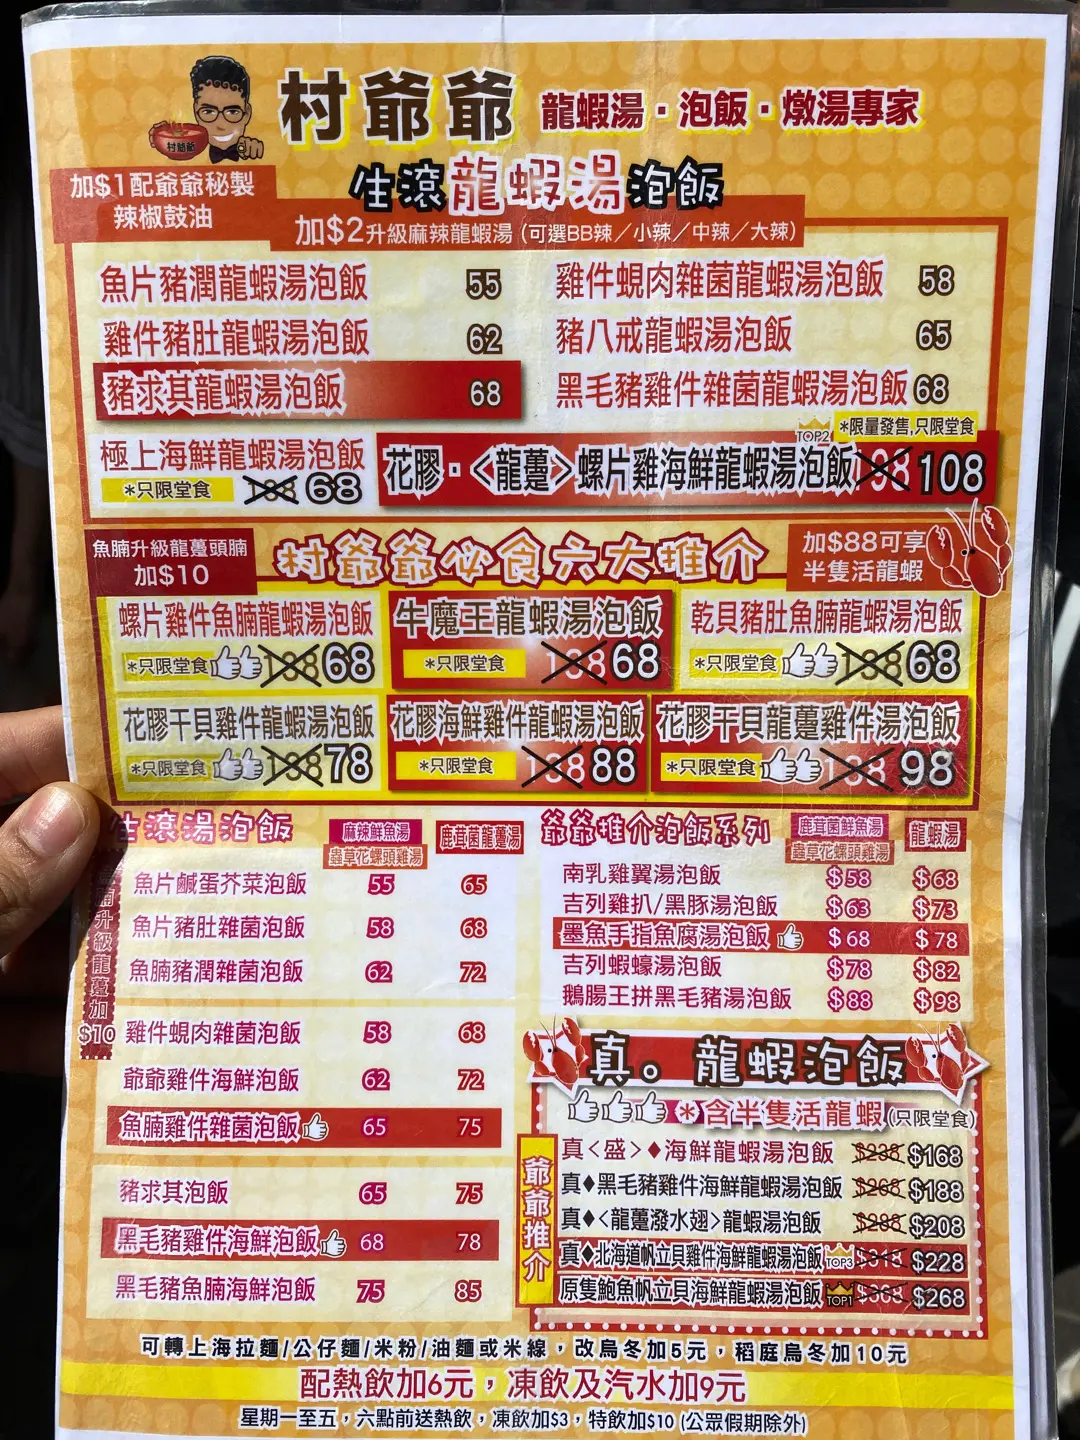 村爺爺
村爺爺 龍蝦湯・泡飯・燉湯專家
生滾龍蝦湯泡飯
加$1配爺爺秘製
辣椒鼓油
加$2升級麻辣龍蝦湯(可選BB辣／小辣／中辣／大辣)
魚片豬潤龍蝦湯泡飯 55
雞件蜆肉雜菌龍蝦湯泡飯 58
雞件豬肚龍蝦湯泡飯 62
豬八戒龍蝦湯泡飯 65
豬求其龍蝦湯泡飯 68
黑毛豬雞件雜菌龍蝦湯泡飯 68
*限量發售,只限堂食
極上海鮮龍蝦湯泡飯
*只限堂食 88 68
TOP2
花膠・<龍躉>螺片雞海鮮龍蝦湯泡飯 198 108
魚腩升級龍躉頭腩
加$10
村爺爺必食六大推介
加$88可享
半隻活龍蝦
螺片雞件魚腩龍蝦湯泡飯
*只限堂食 138 68
牛魔王龍蝦湯泡飯
*只限堂食 138 68
乾貝豬肚魚腩龍蝦湯泡飯
*只限堂食 138 68
花膠干貝雞件龍蝦湯泡飯
*只限堂食 138 78
花膠海鮮雞件龍蝦湯泡飯
*只限堂食 138 88
花膠干貝龍躉雞件湯泡飯
*只限堂食 138 98
生滾湯泡飯
麻辣鮮魚湯
蟲草花螺頭雞湯
鹿茸菌龍躉湯
魚片鹹蛋芥菜泡飯 55 65
魚片豬肚雜菌泡飯 58 68
魚腩豬潤雜菌泡飯 62 72
雞件蜆肉雜菌泡飯 58 68
爺爺雞件海鮮泡飯 62 72
魚腩雞件雜菌泡飯 65 75
豬求其泡飯 65 75
黑毛豬雞件海鮮泡飯 68 78
黑毛豬魚腩海鮮泡飯 75 85
腩升級龍躉加$10
爺爺推介泡飯系列
鹿茸菌鮮魚湯
蟲草花螺頭雞湯
龍蝦湯
南乳雞翼湯泡飯 $58 $68
吉列雞扒/黑豚湯泡飯 $63 $73
墨魚手指魚腐湯泡飯 $68 $78
吉列蝦蠔湯泡飯 $78 $82
鵝腸王拼黑毛豬湯泡飯 $88 $98
真。龍蝦泡飯
*含半隻活龍蝦(只限堂食)
爺爺推介
真<盛>♦海鮮龍蝦湯泡飯 $238 $168
真♦黑毛豬雞件海鮮龍蝦湯泡飯 $268 $188
真♦<龍躉潑水翅>龍蝦湯泡飯 $288 $208
真♦北海道帆立貝雞件海鮮龍蝦湯泡飯 TOP3 $318 $228
原隻鮑魚帆立貝海鮮龍蝦湯泡飯 TOP1 $368 $268
可轉上海拉麵/公仔麵/米粉/油麵或米線，改烏冬加5元，稻庭烏冬加10元
配熱飲加6元，凍飲及汽水加9元
星期一至五，六點前送熱飲，凍飲加$3，特飲加$10(公眾假期除外)